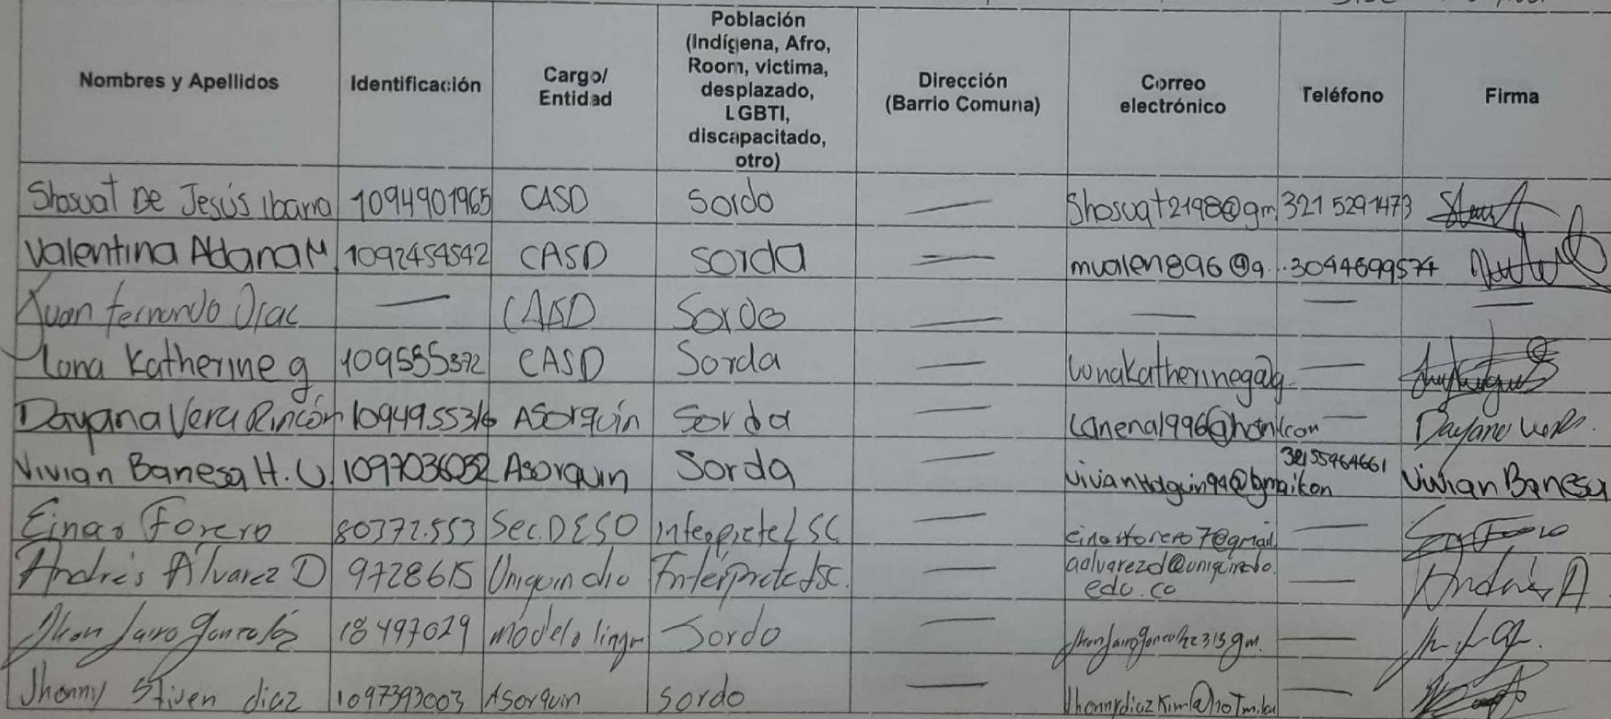 Nombres y Apellidos Identificación Cargo/ Entidad Población (Indígena, Afro, Room, victima, desplazado, LGBTI, discapacitado, otro) Dirección (Barrio Comuna) Correo electrónico Teléfono Firma
Shosuat De Jesús Ibarra 1094901965 CASD Sordo — Shosuat2198@gm 321 5291473
Valentina Aldana M 1092454542 CASD Sorda — mvalen896@g... 3044699574
Juan fernando Diac — CASD Sordo — — — —
Luna Katherine g 109585372 CASD Sorda — Lunakatherinegag —
Dayana Vera Rincón 1094955316 Asorquín Sorda — — Dayana
Vivian Banesa H. U. 1097036032 Asorquin Sorda 32155964661 Vivian Banesa
Einar Forero 80372.553 Sec.DESO Interprete LSC — einarforero7@gmail —
Andrés Álvarez D 9728615 Uniquindio Interprete lsc. — aalvarezd@uniquindio. — Andrés A
edu.co
Jhon Jairo Gonzalez 18497029 modelo lingu Sordo — —
Jhonny Stiven diaz 1097393003 Asorquin sordo — —